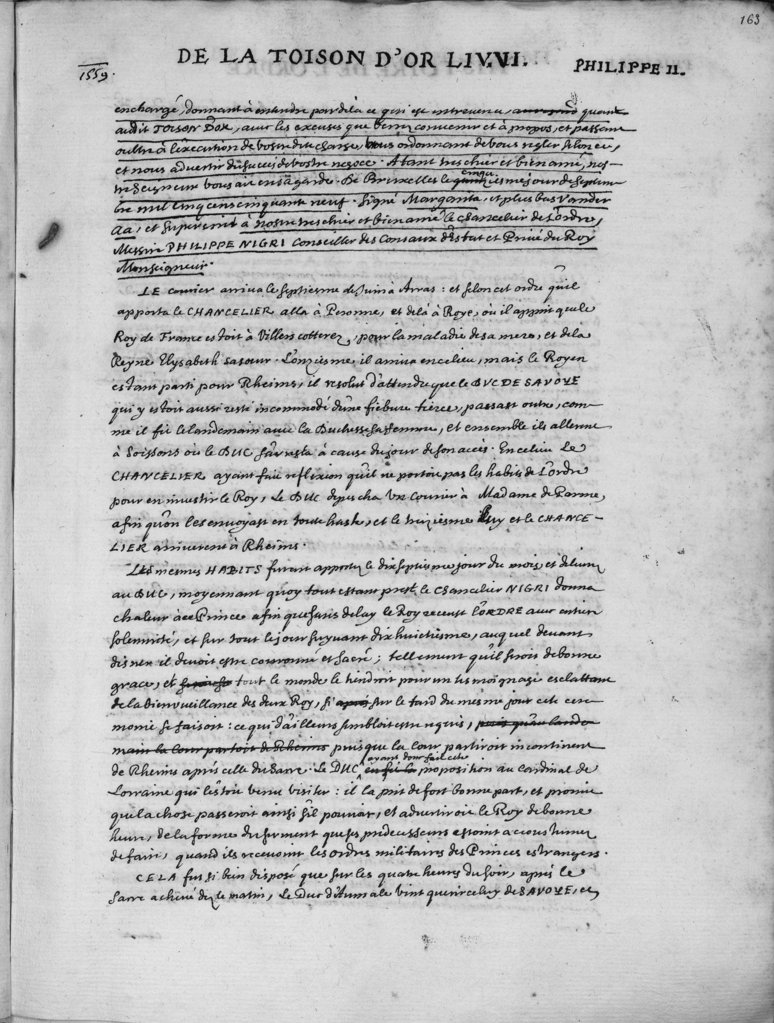 163
1559.
DE LA TOISON D'OR LIV.VI.
PHILIPPE II.
enchargé, donnant à entendre par delà ce qui est entrevenu, quant
audit TOISON D'OR, avec les excuses que verrez convenir et à propos, et passant
oultre à l'execution de vostre ditte charge, vous ordonnant de vous regler selon ce,
et nous advertir du succes de vostre negoce. Atant tres chier et bien amé, nos-
tre Seigneur vous ait en sa garde. De Bruxelles le cinq iesme jour de Septem
bre mil cinq cens cinquante neuf. Signé Margarita, et plus bas Vander
Aa, et superscrit à nostre tres chier et bien amé le Chancelier de l'ordre,
Messire PHILIPPE NIGRI Conseiller des Consaux d'Estat et Privé du Roy
Monseigneur.
LE courier arriva le septiesme à Arras : et selon cet ordre qu'il
apporta le CHANCELIER alla à Peronne, et delà à Roye, où il apprit que le
Roy de France estoit à Villers cotterez, pour la maladie de sa mere, et de la
Reyne Elysabeth sa soeur. L'onziesme il arriva en ce lieu, mais le Roy en
estant parti pour Rheims, il resolut d'attendre que le DUC DE SAVOYE
qui y estoit aussi resté incommodé d'une fiebvre tierce, passast outre, com-
me il fit le landemain avec la Duchesse sa femme, et ensemble ils allerent
à Soissons où le DUC s'arresta à cause du jour de son accès. En ce lieu Le
CHANCELIER ayant fait reflexion qu'il ne portoit pas les habits de l'ordre
pour en investir le Roy, Le DUC depescha un Courier à Madame de Parme,
afin qu'on les envoyast en toute haste, et le treiziesme luy et le CHANCE-
LIER arriverent à Rheims.
LES mesmes HABITS furent apportez le dixseptiesme jour du mois et delivrez
au DUC, moyennant quoy tout estant prest le Chancelier NIGRI donna
chaleur à ce Prince afin que sans delay le Roy receust l'ORDRE avec entiere
solemnité, et sur tout le jour suyvant dixhuictiesme, auquel devant
disner il devoit estre couronné et sacré ; tellement qu'il seroit de bonne
grace, et tout le monde le tiendroit pour un tesmoignage esclattant
de la bienveuillance des deux Roys, si sur le tard du mesme jour cete cere-
monie se faisoit : ce qui d'ailleurs sembloit estre requis, puis qu'au lande-
main la Cour partoit de Rheims puisque la Cour partiroit incontinent
de Rheims après celle du Sacre. Le DUC ayant donc fait cete proposition au Cardinal de
Lorraine qui l'estoit venu visiter : il la prit de fort bonne part, et promit
que la chose passeroit ainsi s'il pouvoit, et advertiroit le Roy de bonne
heure, de la forme du serment que ses predecesseurs estoint accoustumez
de faire, quand ils recevoint les ordres militaires des Princes estrangers.
CELA fut si bien disposé que sur les quatre heures du soir, après le
Sacre achevé dez le matin, Le Duc d'Aumale vint querir celuy de SAVOYE, et